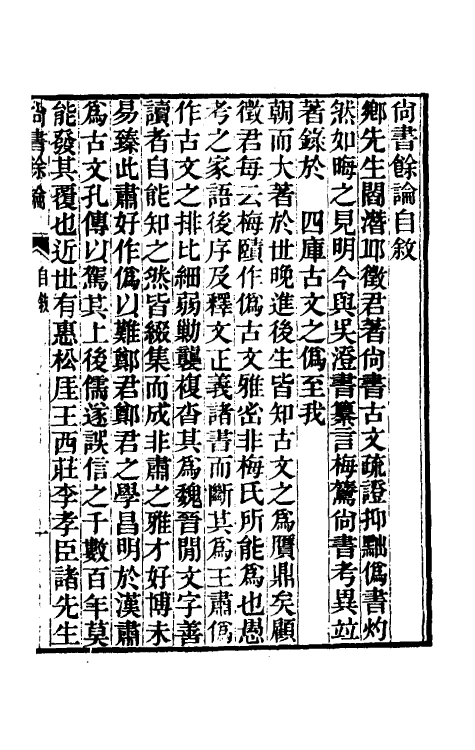 尙書餘論自敘
鄉先生閻潛邱徵君著尙書古文疏證抑黜僞書灼
然如晦之見明今與吳澄書纂言梅鷟尙書考異竝
著錄於　四庫古文之僞至我
朝而大著於世晚進後生皆知古文之爲贋鼎矣顧
徵君每云梅賾作僞古文雅密非梅氏所能爲也愚
考之家語後序及釋文正義諸書而斷其爲王肅僞
作古文之排比細弱勦襲複沓其爲魏晉閒文字善
讀者自能知之然皆綴集而成非肅之雅才好博未
易臻此肅好作僞以難鄭君鄭君之學昌明於漢肅
爲古文孔傳以駕其上後儒遂誤信之千數百年莫
能發其覆也近世有惠松厓王西莊李孝臣諸先生
尙書餘論　自敘　一